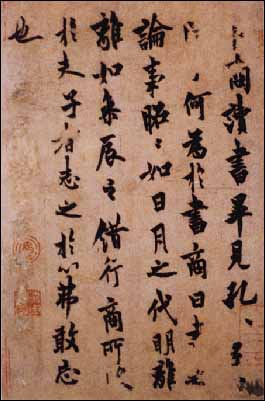 商讀書畢見孔子
何為於書商曰書
論事昭〻如日月之代明離
離如參辰之錯行商所
於夫子者志之於心弗敢忘
也